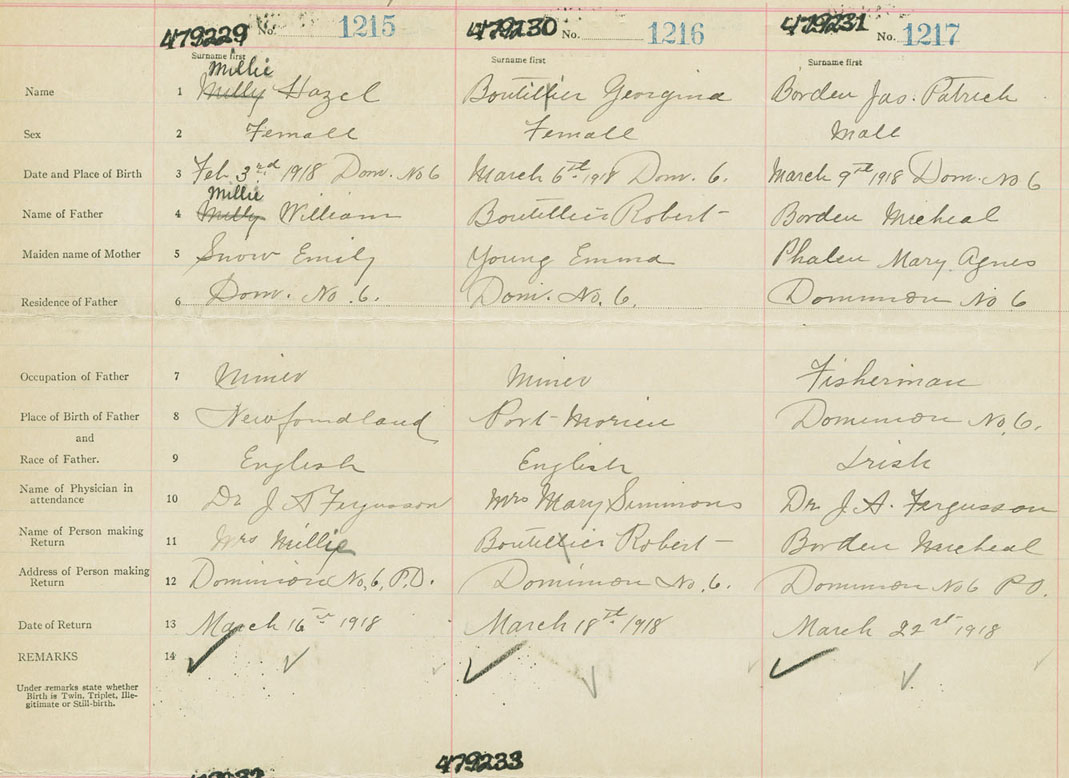 479229 No. 1215 479230 No. 1216 479231 No. 1217
Surname first Surname first Surname first
Millie
Name 1 Milly Hazel Boutillier Georgina Borden Jas. Patrick
Sex 2 Female Female Male
Date and Place of Birth 3 Feb 3rd 1918 Dom. No 6 March 6th 1918 Dom. 6. March 9th 1918 Dom. No 6
Millie
Name of Father 4 Milly William Boutillier Robert Borden Micheal
Maiden name of Mother 5 Snow Emily Young Emma Phalen Mary Agnes
Residence of Father 6 Dom. No. 6. Dom. No. 6. Dominion No 6
Occupation of Father 7 Miner Miner Fisherman
Place of Birth of Father 8 Newfondland Port Morien Dominion No. 6.
and
Race of Father. 9 English English Irish
Name of Physician in
attendance 10 Dr J A Fergusson Mrs Mary Simmons Dr. J. A. Fergusson
Name of Person making
Return 11 Mrs Millie Boutillier Robert Borden Micheal
Address of Person making
Return 12 Dominion No, 6, P.O. Dominion No. 6. Dominion No 6 P.O.
Date of Return 13 March 16th 1918 March 18th 1918 March 22nd 1918
REMARKS 14
Under remarks state whether
Birth is Twin, Triplet, Ille-
gitimate or Still-birth.
479233